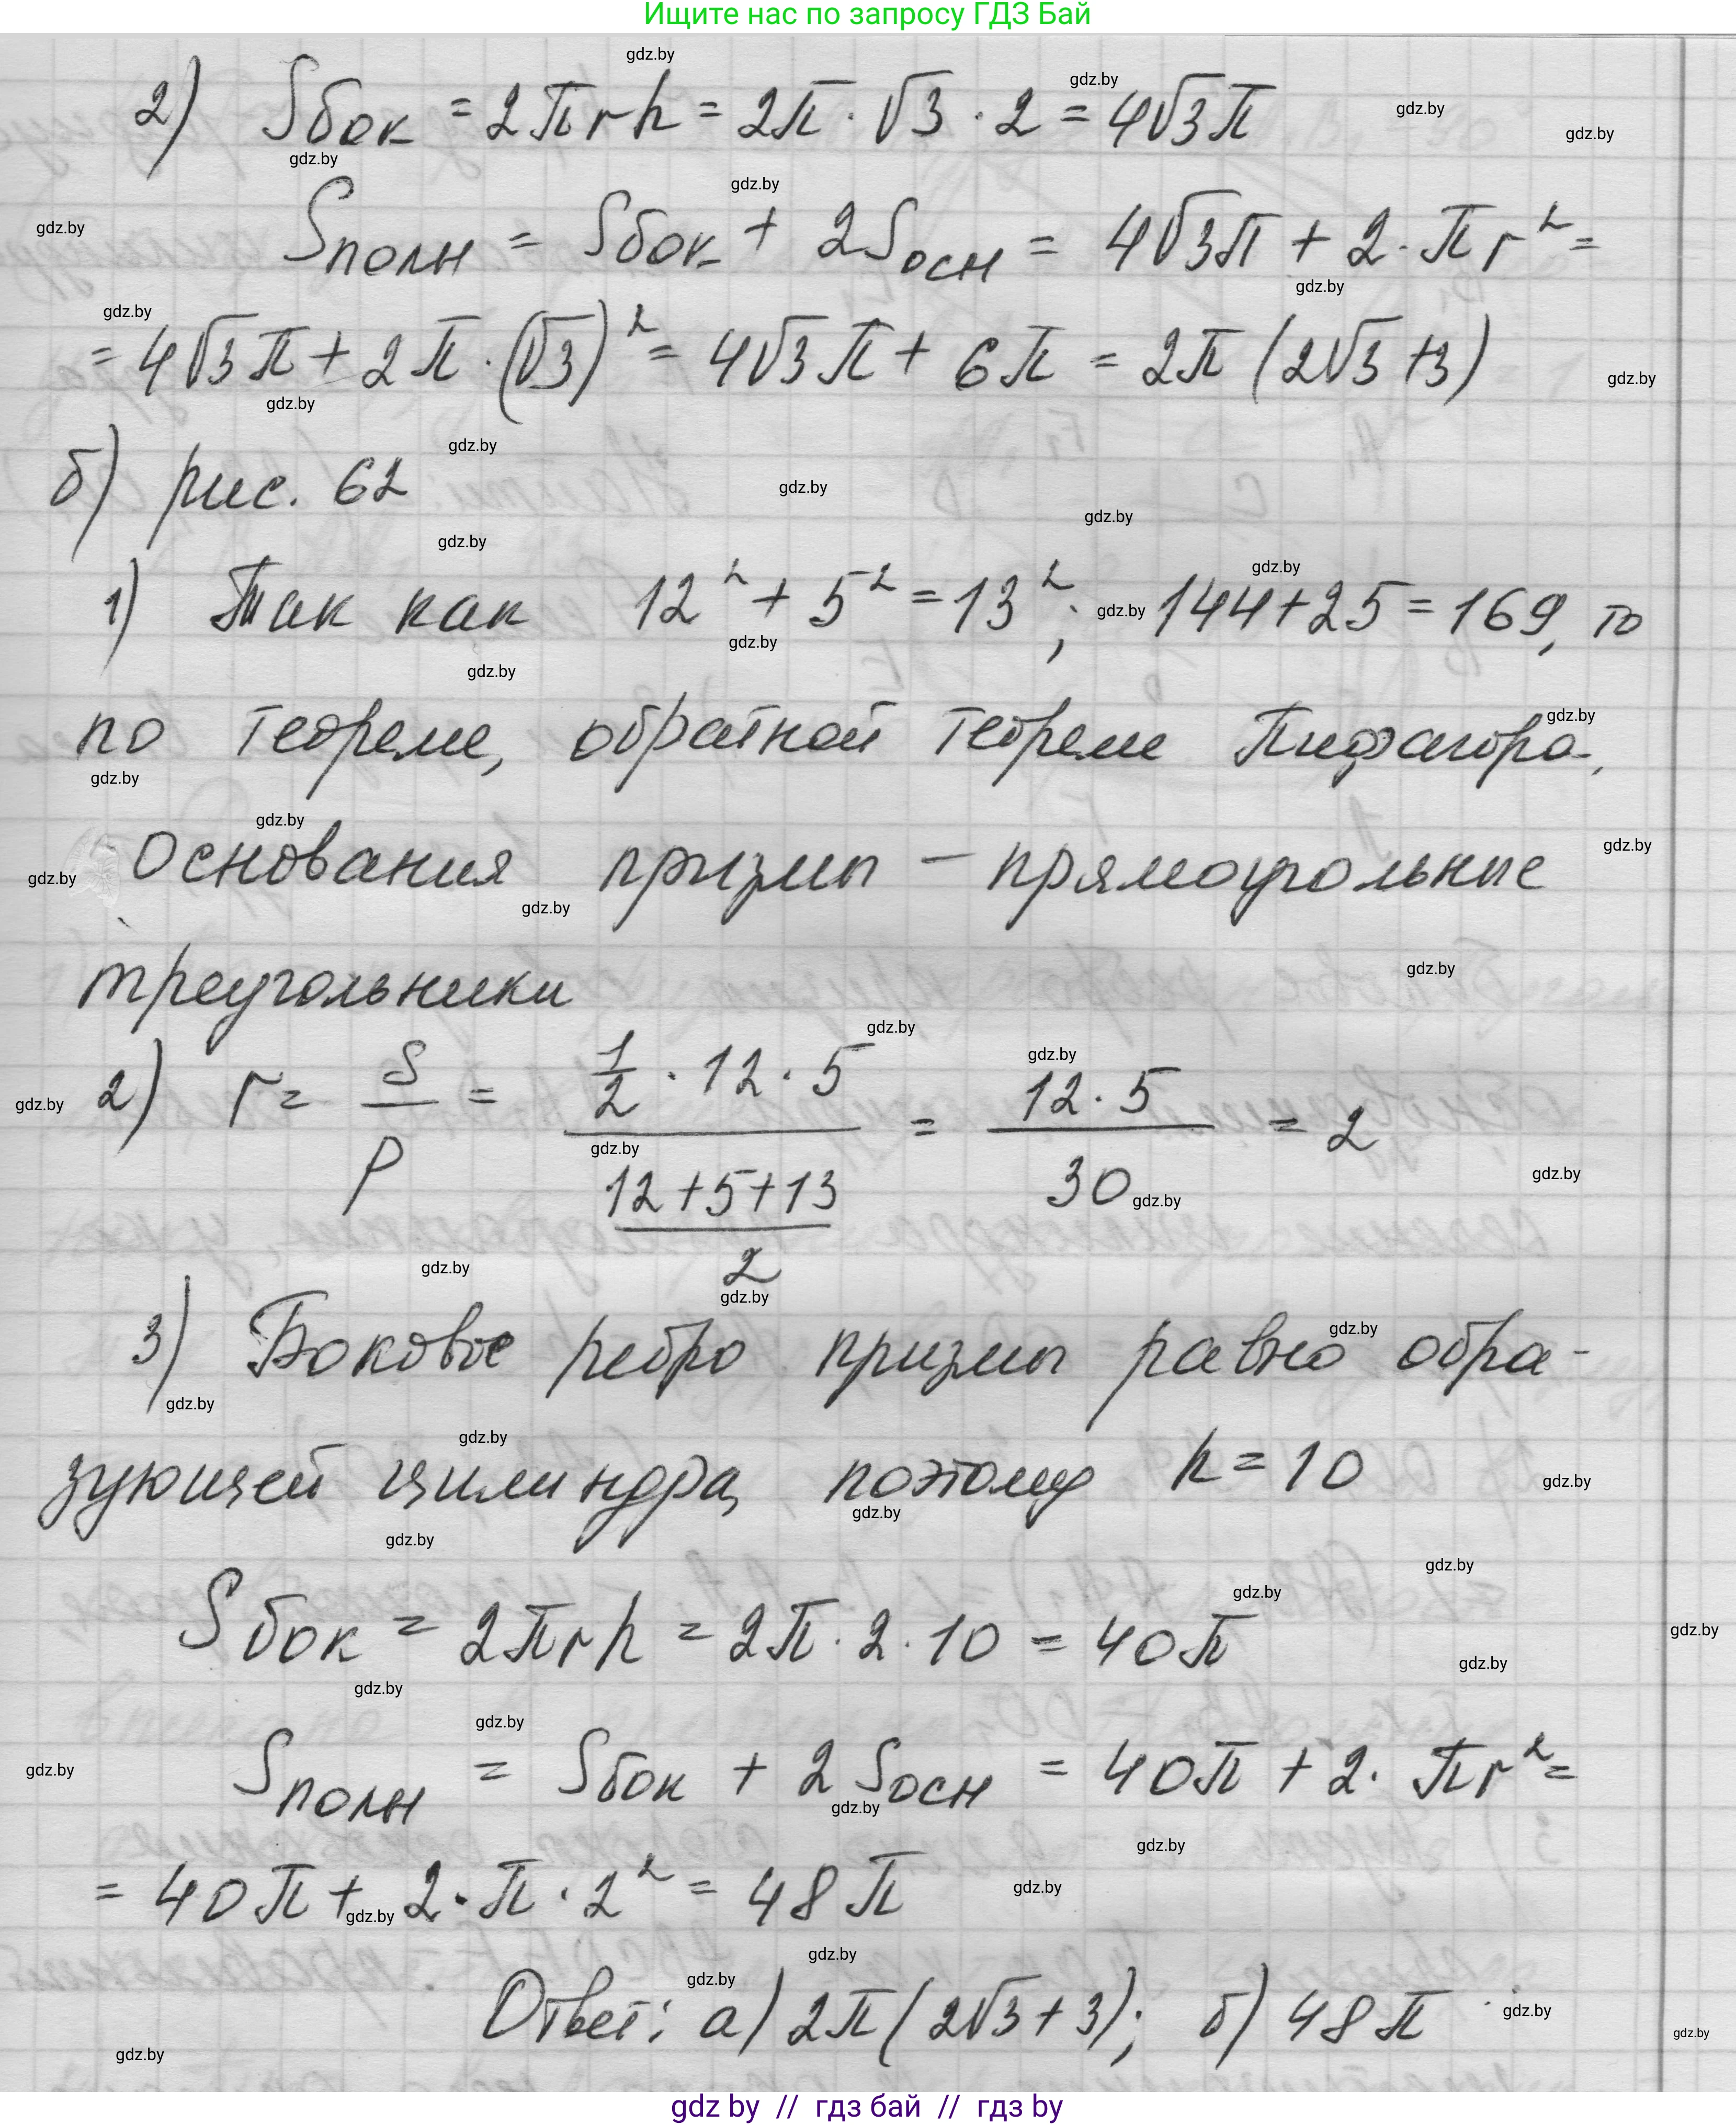 Ищите нас по запросу ГДЗ Бай
2) Sбок = 2πrh = 2π · √3 · 2 = 4√3π
Sполн = Sбок + 2Sосн = 4√3π + 2 · πr² =
= 4√3π + 2π · (√3)² = 4√3π + 6π = 2π (2√3 + 3)
б) рис. 62
1) Так как 12² + 5² = 13²; 144 + 25 = 169, то
по теореме, обратной теореме Пифагора,
основания призмы – прямоугольные
треугольники
2) r = S/p = (1/2 · 12 · 5)/((12 + 5 + 13)/2) = (12 · 5)/30 = 2
3) Боковое ребро призмы равно обра-
зующей цилиндра, поэтому h = 10
Sбок = 2πrh = 2π · 2 · 10 = 40π
Sполн = Sбок + 2 Sосн = 40π + 2 · πr² =
= 40π + 2 · π · 2² = 48π
Ответ: а) 2π(2√3 + 3); б) 48π
gdz by // гдз бай // гдз by